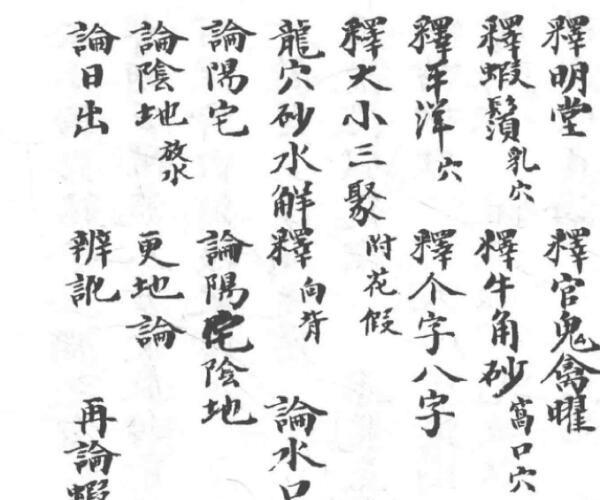 釋明堂 釋官鬼禽曜
釋蝦鬚乳穴 釋牛角砂窩口穴
釋平洋穴 釋个字八字
釋大小三聚附花假
龍穴砂水解釋向背 論水口
論陽宅 論陽宅陰地
論陰地放水 更地論
論日出 辨訛 再論蝦